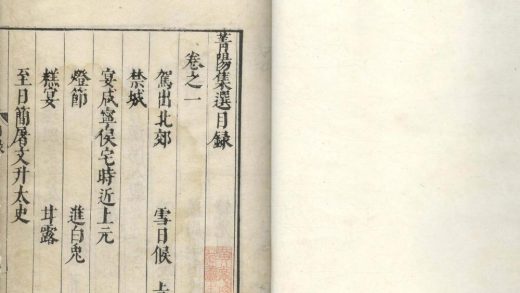 菁陽集選目錄
卷之一
駕出北郊 雪日候
禁城
宴咸寧侯宅時近上元
燈節 進白兎
慈宴 甘露
至日簡屠文升太史